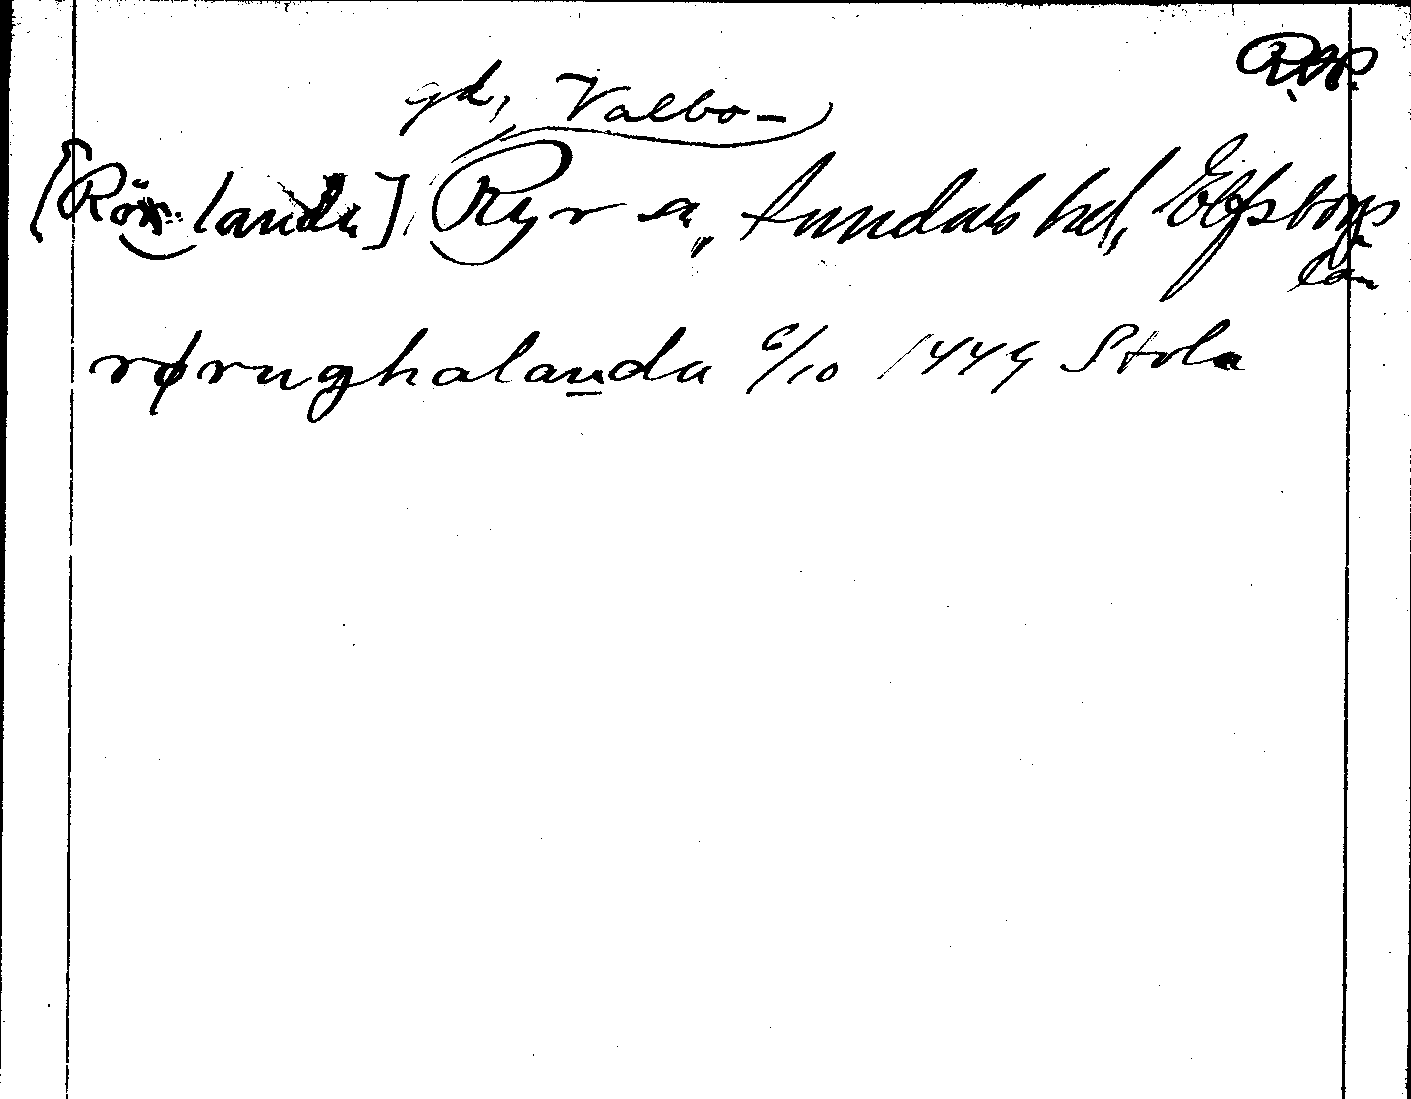 gd, Valbo-
[Rör landa] Ryr sn, Sundals hd, Elfsborgs
län
rørughalanda 6/10 1449 Stola